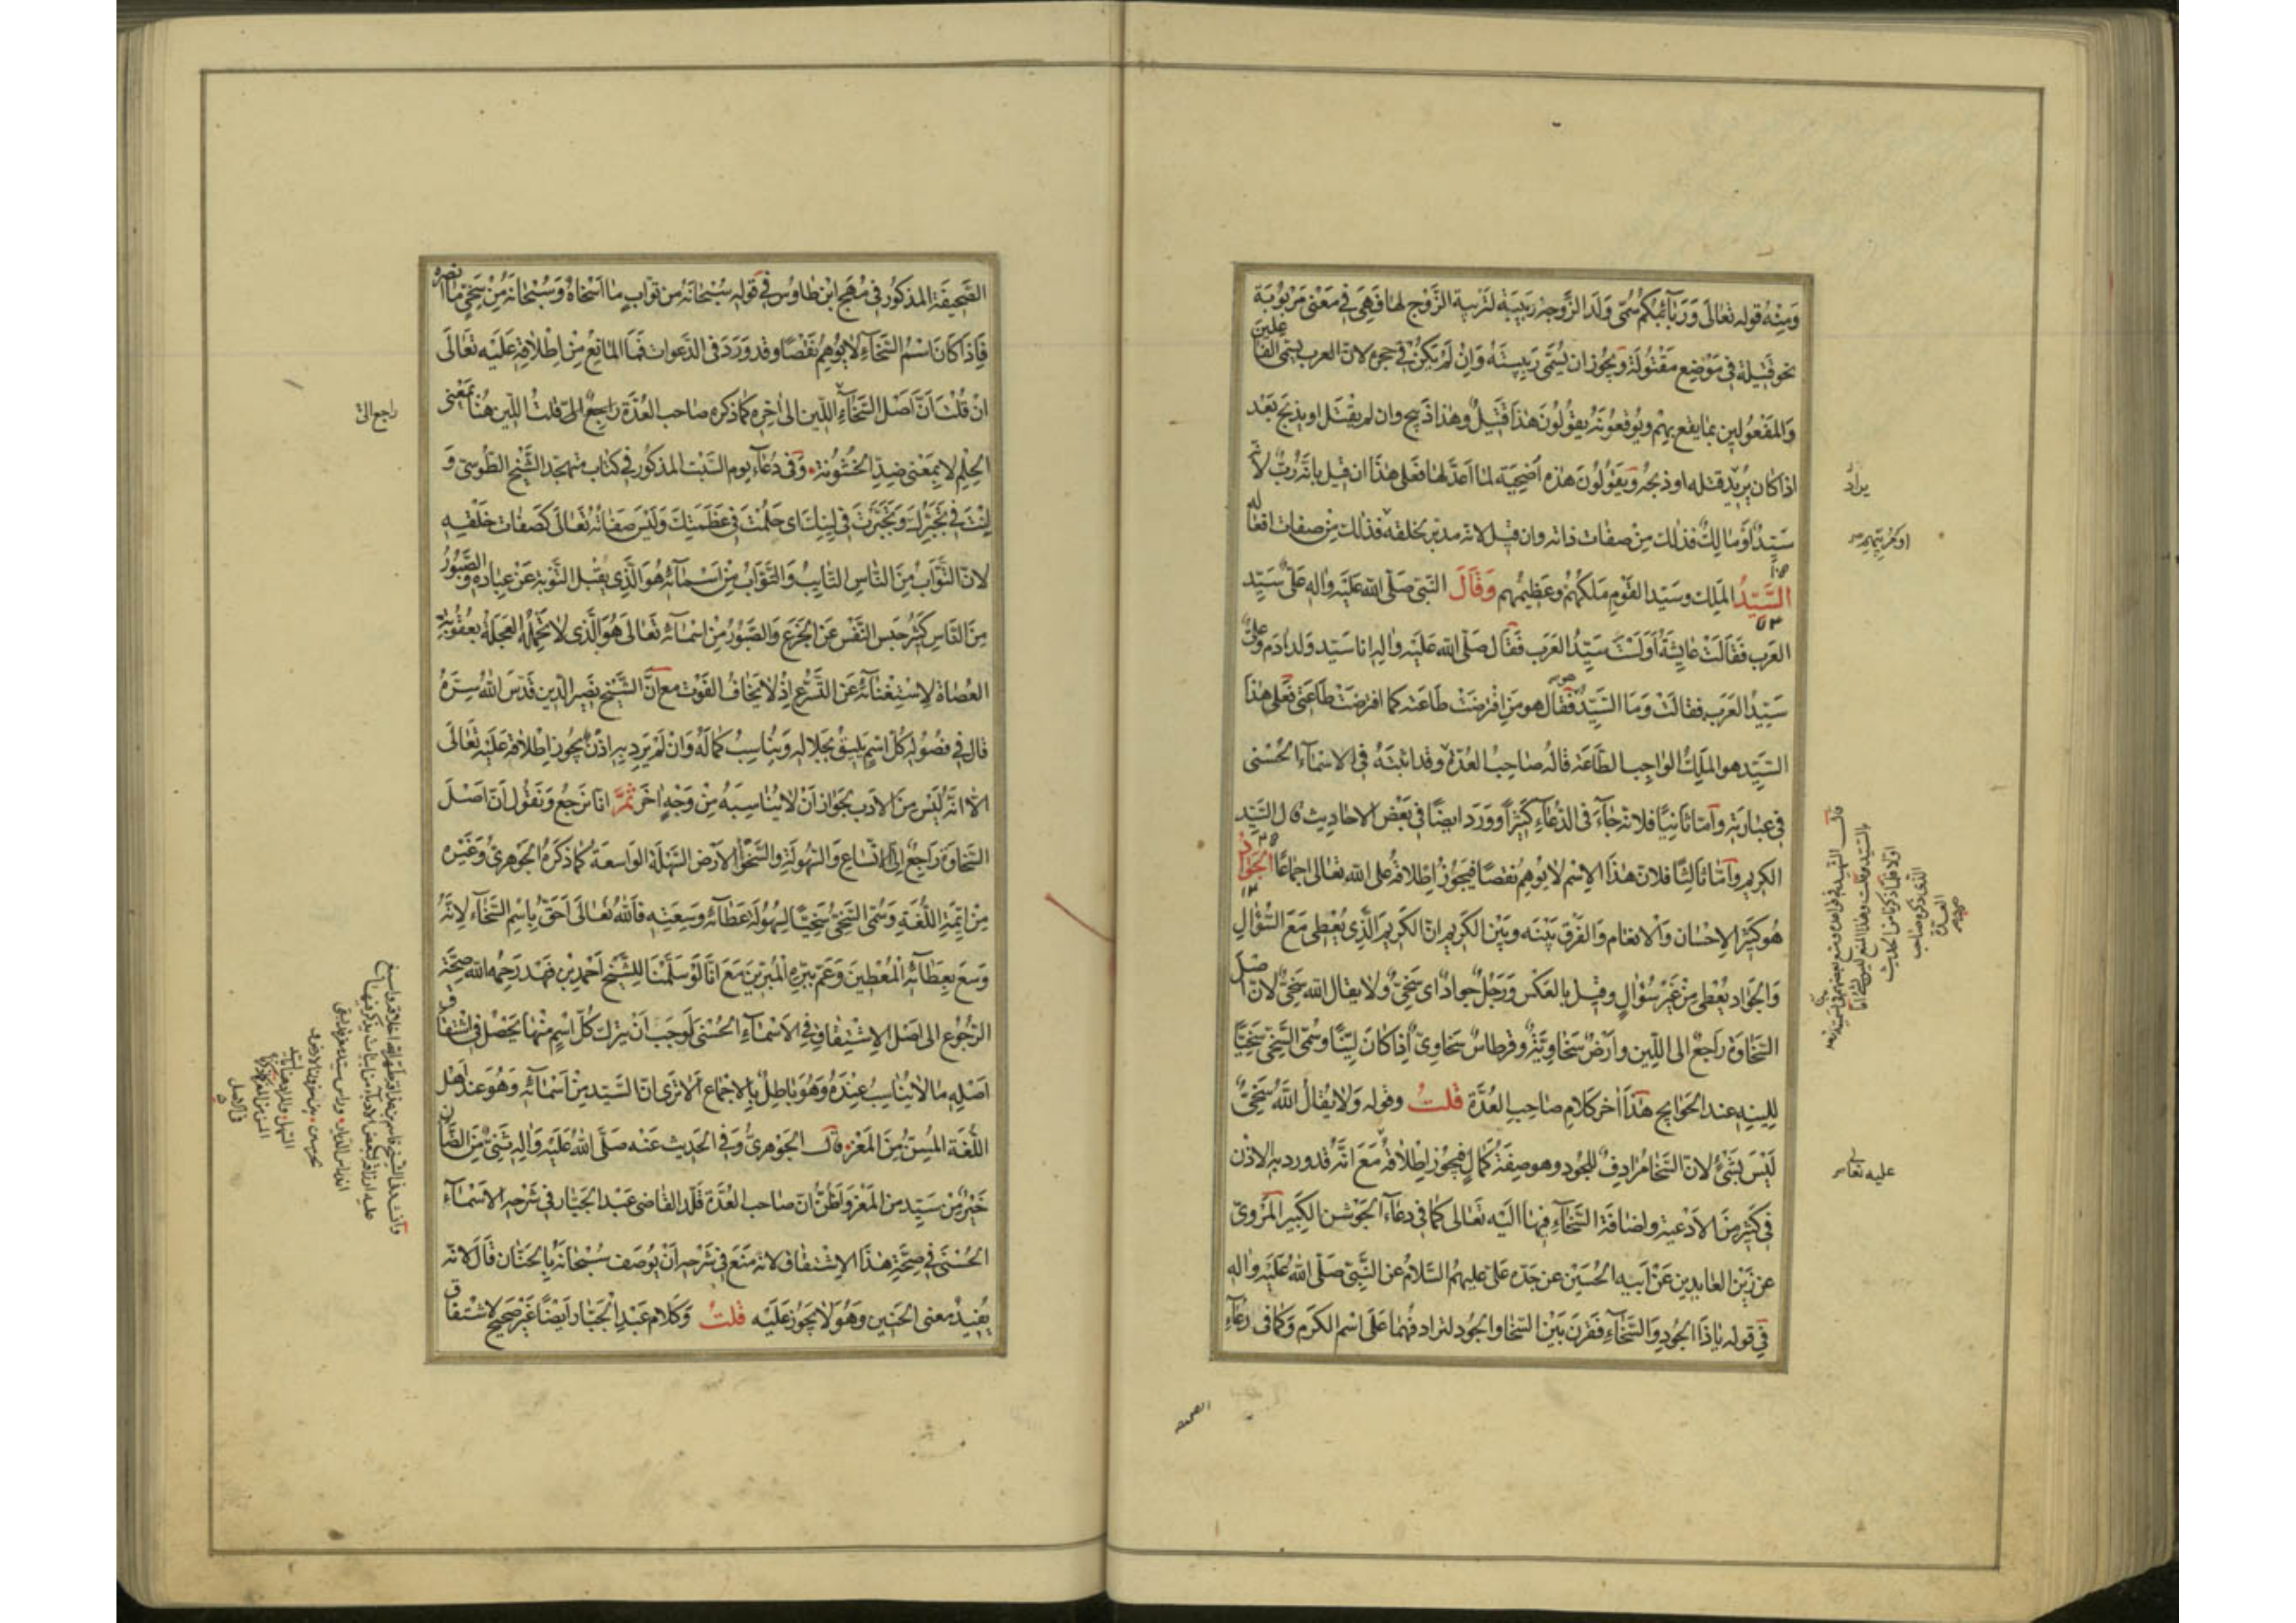 ومنه قوله تعالى وربائبكم سمى ولد الزوجة ربيبة لتربية الزوج لها فهى فى معنى مربوبة
نحو قتيلة فى موضع مقتولة ويجوز ان يسمى ربيبته وان لم يكن فى حجره لان العرب يسمى الفاعلين
والمفعولين بما يقع بهم ويوقعونه يقولون هذا قتيل وهذا ذبيح وان لم يقتل او يذبح بعد
اذا كان يريد قتله او ذبحه ويقولون هذه اضحية لما اعد لها فعلى هذا ان قيل بانه رب لانه
سيد او مالك فذلك من صفات ذاته وان قيل لانه مدبر بخلقه فذلك من صفات افعاله
السيد الملك وسيد القوم ملكهم وعظيمهم وقال النبى صلى الله عليه واله على سيد
العرب فقالت عايشة اولست سيد العرب فقال صلى الله عليه واله انا سيد ولد ادم وعلى
سيد العرب فقالت وما السيد فقال هو من افترضت طاعته كما افترضت طاعتى فعلى هذا
السيد هو الملك الواجب الطاعة قاله صاحب العدة وقد اثبته فى الاسماء الحسنى
فى عبارته واما ثانيا فلانه جاء فى الدعاء كثيرا وورد ايضا فى بعض الاحاديث قال السيد
الكريم واما ثالثا فلان هذا الاسم لا يوهم نقصا فيجوز اطلاقه على الله تعالى اجماعا الجواد
هو كثير الاحسان والانعام والفرق بينه وبين الكريم ان الكريم الذى يعطى مع السؤال
والجواد يعطى من غير سؤال وقيل بالعكس ورجل جواد اى سخى ولا يقال الله سخى لان اصل
السخاوة راجع الى اللين وارض سخاوية وقرطاس سخاوى اذا كان لينا وسمى السخى سخيا
للينه عند الحوايج هذا اخر كلام صاحب العدة قلت وقوله ولا يقال الله سخى
ليس بشئ لان السخا مرادف للجود وهو صفة كمال فيجوز اطلاقه مع انه قد ورد به الاذن
فى كثير من الادعية واضافة السخاء فيها اليه تعالى كما فى دعاء الجوشن الكبير المروى
عن زين العابدين عن ابيه الحسين عن جده على عليهم السلام عن النبى صلى الله عليه واله
فى قوله يا ذا الجود والسخاء فقرن بين السخا والجود لترادفهما على اسم الكرم وكما فى دعاء
يراد
عليه تعالى
الصحيفه
الصحيفة المذكور فى مهج ابن طاوس فى قوله سبحانه من تواب ما اسخاه وسبحانه من سخى ما انصره
فاذا كان اسم السخاء لا يوهم نقصا وقد ورد فى الدعوات فما المانع من اطلاقه عليه تعالى
ان قلت ان اصل السخاء اللين الى اخره كما ذكره صاحب العدة راجع الى قلت اللين هنا بمعنى
الحلم لا بمعنى ضد الخشونة وفى دعاء يوم السبت المذكور فى كتاب متهجد الشيخ الطوسى و
لنت فى تجبرك وتجبرت فى لينك اى حلمت فى عظمتك وليس صفاته تعالى كصفات خلقه
لان التواب من الناس التايب والتواب من اسمائه هو الذى يقبل التوبة عن عباده والصبور
من الناس كثير حبس النفس عن الجزع والصبور من اسمائه تعالى هو الذى لا تحمله العجلة بعقوبة
العصاة لاستغنائه عن التسرع اذ لا يخاف الفوت مع ان الشيخ نصير الدين قدس الله سره
قال فى فصوله كل اسم يليق بجلاله ويناسب كماله وان لم يرد به اذن يجوز اطلاقه عليه تعالى
الا انه ليس من الادب بجواز ان لا يناسبه من وجه اخر ثم انا نرجع ونقول ان اصل
السخاوة راجع الى الاتساع والسهولة والسخوا الارض السهلة الواسعة كما ذكره الجوهرى وغيره
من ائمة اللغة وسمى السخى سخيا لسهولة عطائه وسعته فالله تعالى احق باسم السخاء لانه
وسع بعطائه المعطين وعم ببره المبرين مع انا لو سلمنا للشيخ احمد بن فهد رحمه الله صحة
الرجوع الى اصل الاشتقاق فى الاسماء الحسنى لوجب ان يترك كل اسم منها يحصل فى اشتقاق
اصله ما لا يناسب عنده وهو باطل بالاجماع الا ترى ان السيد من اسمائه وهو عند اهل
اللغة المسن من المعز قال الجوهرى وفى الحديث عنه صلى الله عليه واله ثنى من الضان
خير من سيد من المعز ولظن ان صاحب العدة قلد القاضى عبد الجبار فى شرحه الاسماء
الحسنى فى صحة هذا الاشتقاق لانه منع فى شرحه ان يوصف سبحانه بالحنان قال لانه
يفيد معنى الحنين وهو لا يجوز عليه قلت وكلام عبد الجبار ايضا غير صحيح لاشتقاق
راجع الى
فى الاصل